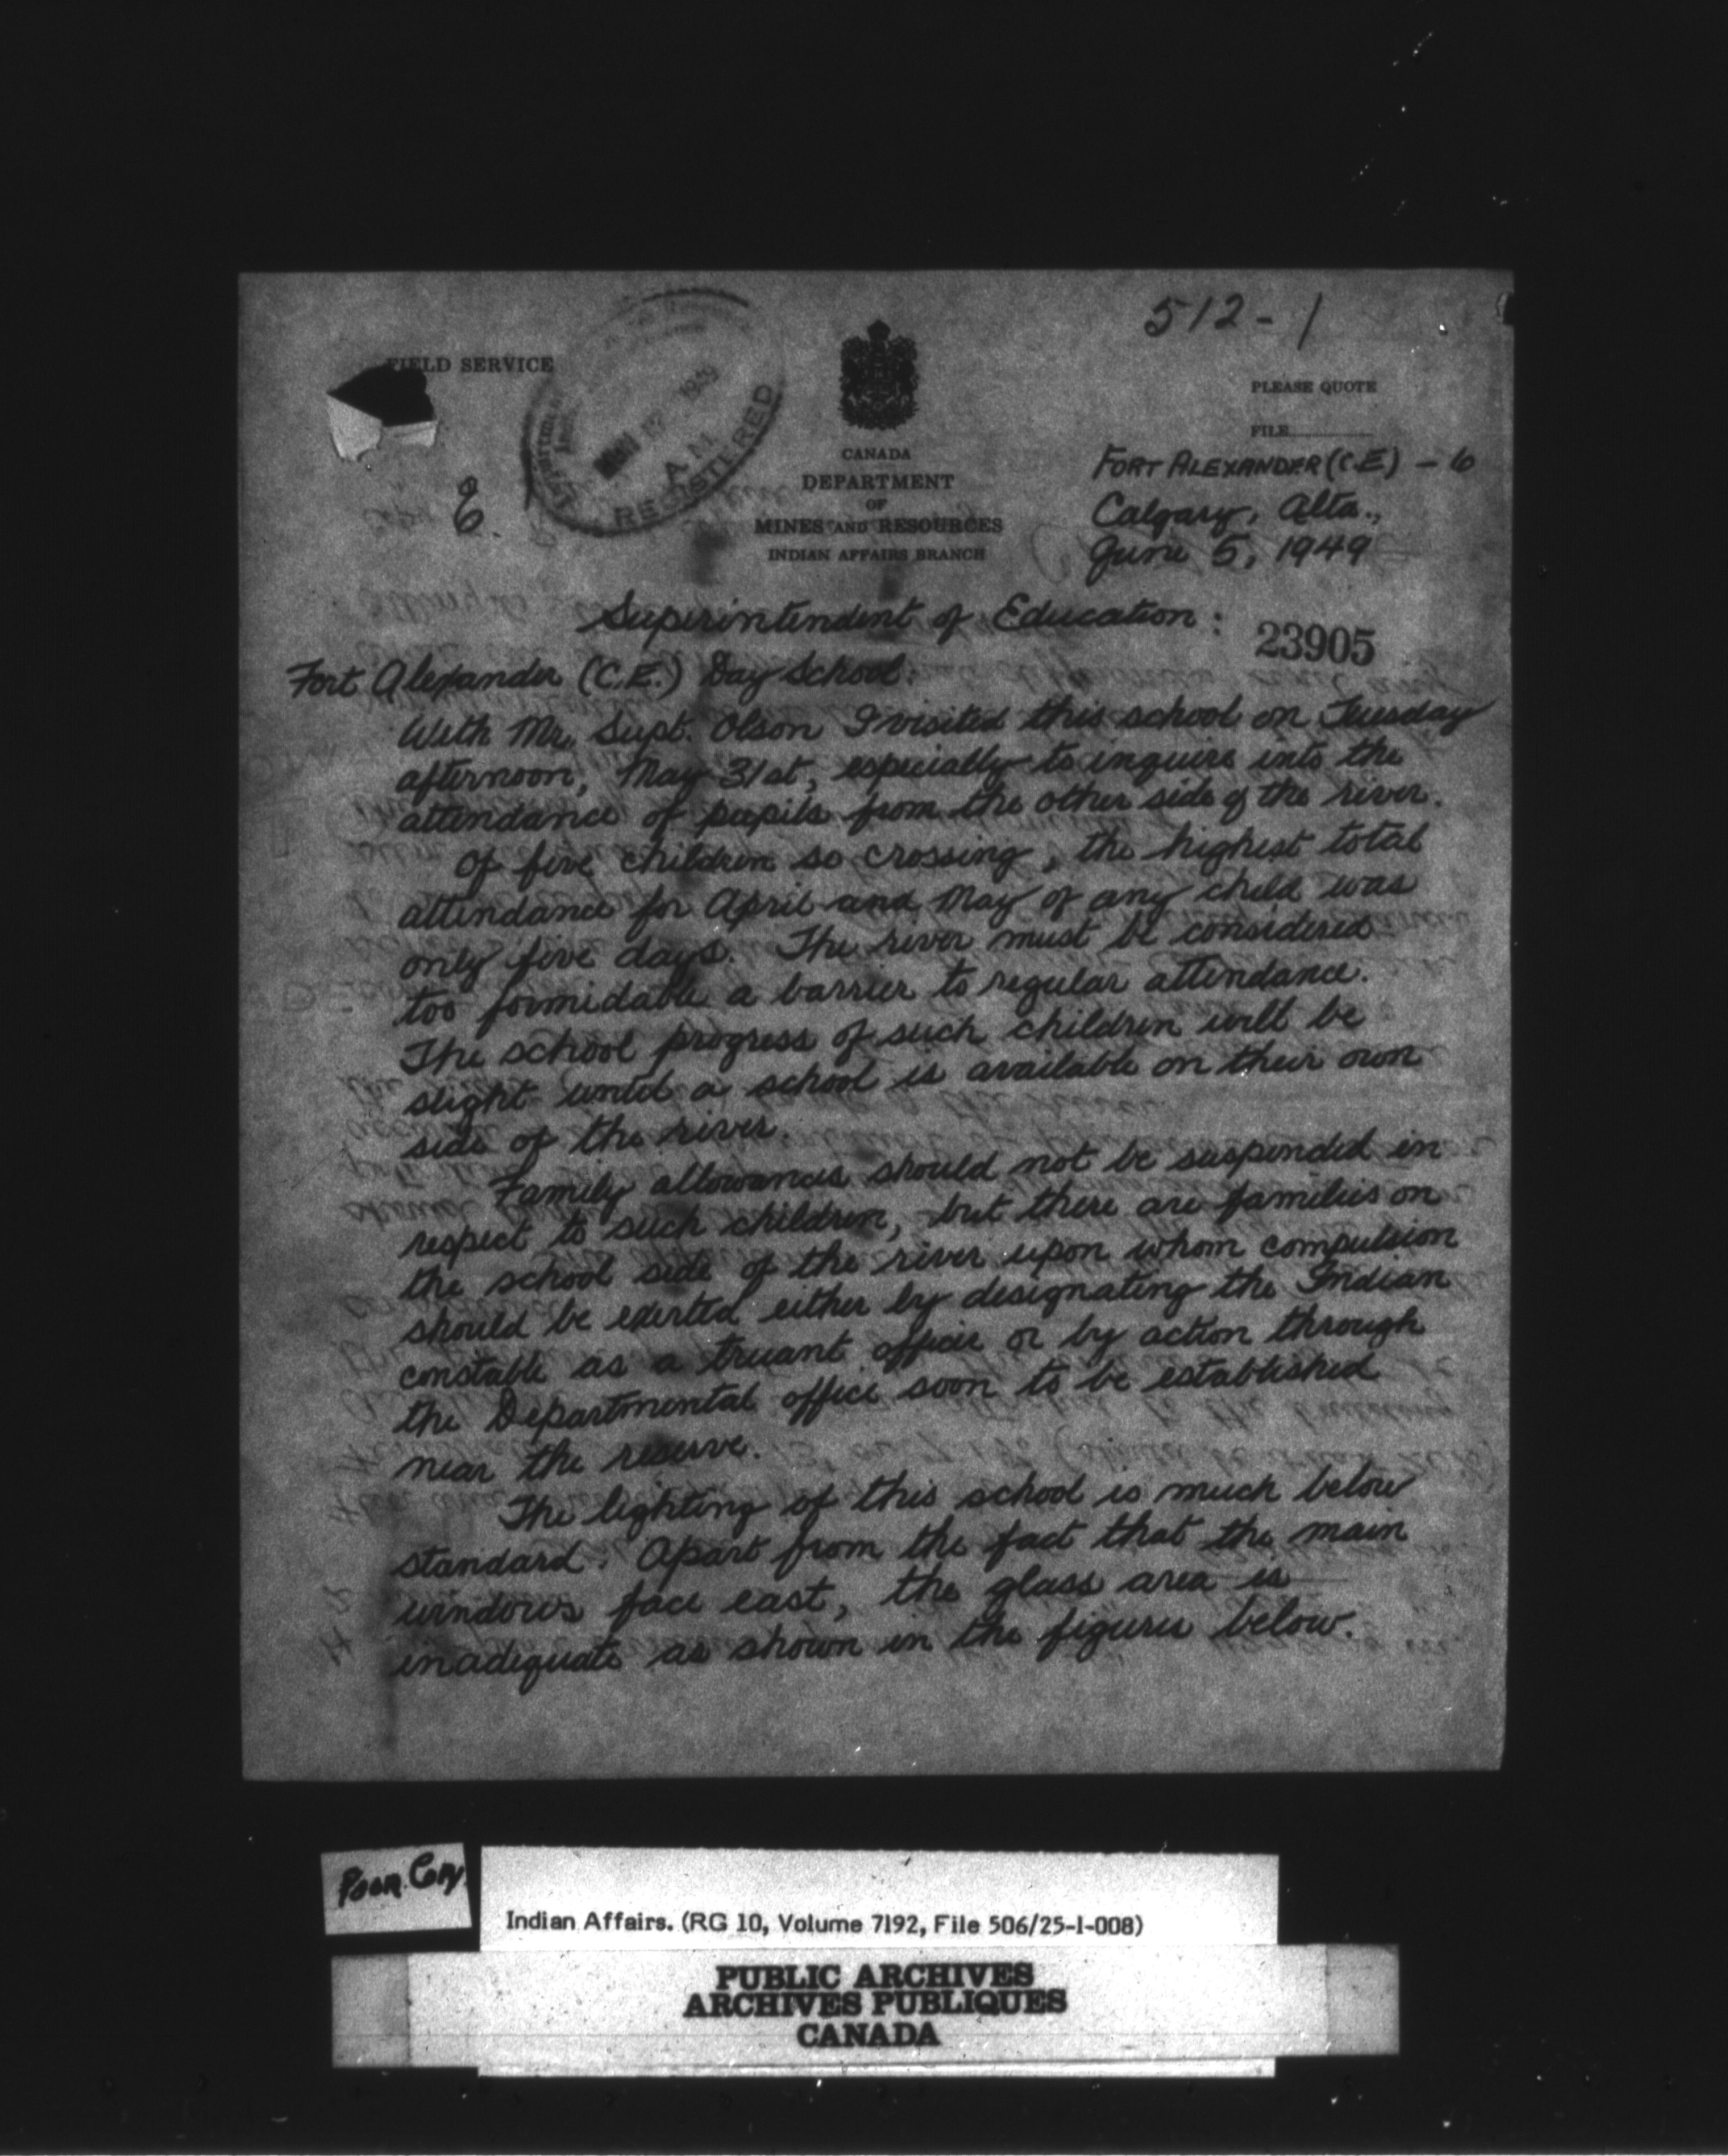 512-1
FIELD SERVICE
PLEASE QUOTE
FILE
REGISTERED
A.M.
1949
E.
CANADA
DEPARTMENT
OF
MINES AND RESOURCES
INDIAN AFFAIRS BRANCH
FORT ALEXANDER (C.E) - 6
Calgary, Alta.,
June 5, 1949
Superintendent of Education:
23905
Fort Alexander (C.E.) Day School:
With Mr. Supt. Olson I visited this school on Tuesday
afternoon, May 31st, especially to inquire into the
attendance of pupils from the other side of the river.
Of five children so crossing, the highest total
attendance for April and May of any child was
only five days. The river must be considered
too formidable a barrier to regular attendance.
The school progress of such children will be
slight until a school is available on their own
side of the river.
Family allowances should not be suspended in
respect to such children, but there are families on
the school side of the river upon whom compulsion
should be exerted either by designating the Indian
constable as a truant officer or by action through
the Departmental office soon to be established
near the reserve.
The lighting of this school is much below
standard. Apart from the fact that the main
windows face east, the glass area is
inadequate as shown in the figures below.
Poor Copy
Indian Affairs. (RG 10, Volume 7192, File 506/25-1-008)
PUBLIC ARCHIVES
ARCHIVES PUBLIQUES
CANADA